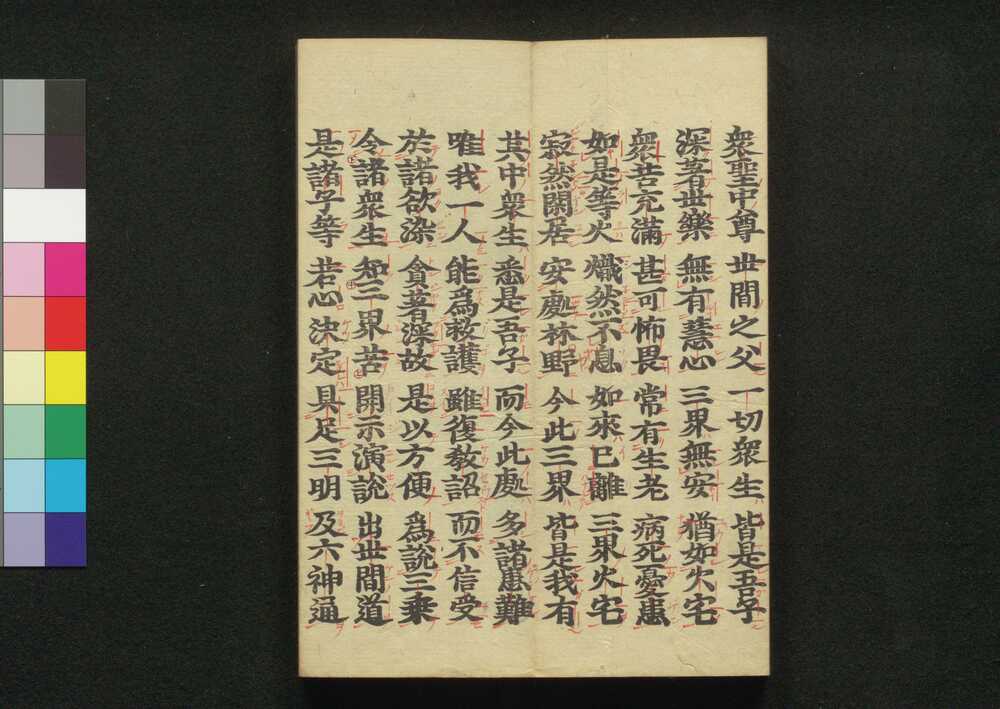 衆聖中尊 世間之父 一切衆生 皆是吾子
深著世樂 無有慧心 三界無安 猶如火宅
衆苦充滿 甚可怖畏 常有生老 病死憂患
如是等火 熾然不息 如來已離 三界火宅
寂然閑居 安處林野 今此三界 皆是我有
其中衆生 悉是吾子 而今此處 多諸患難
唯我一人 能爲救護 雖復教詔 而不信受
於諸欲染 貪著深故 是以方便 爲説三乗
令諸衆生 知三界苦 開示演説 出世間道
是諸子等 若心決定 具足三明 及六神通